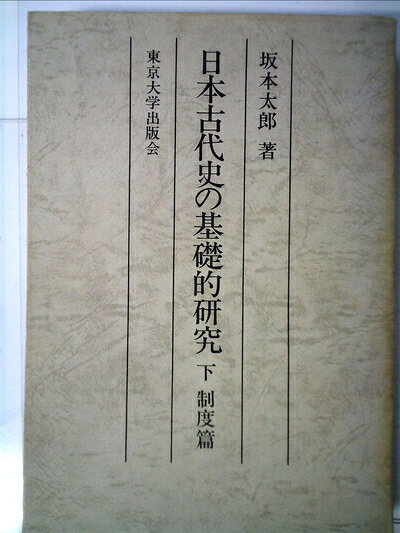 坂本太郎 著
日本古代史の基礎的研究 下 制度篇
東京大学出版会